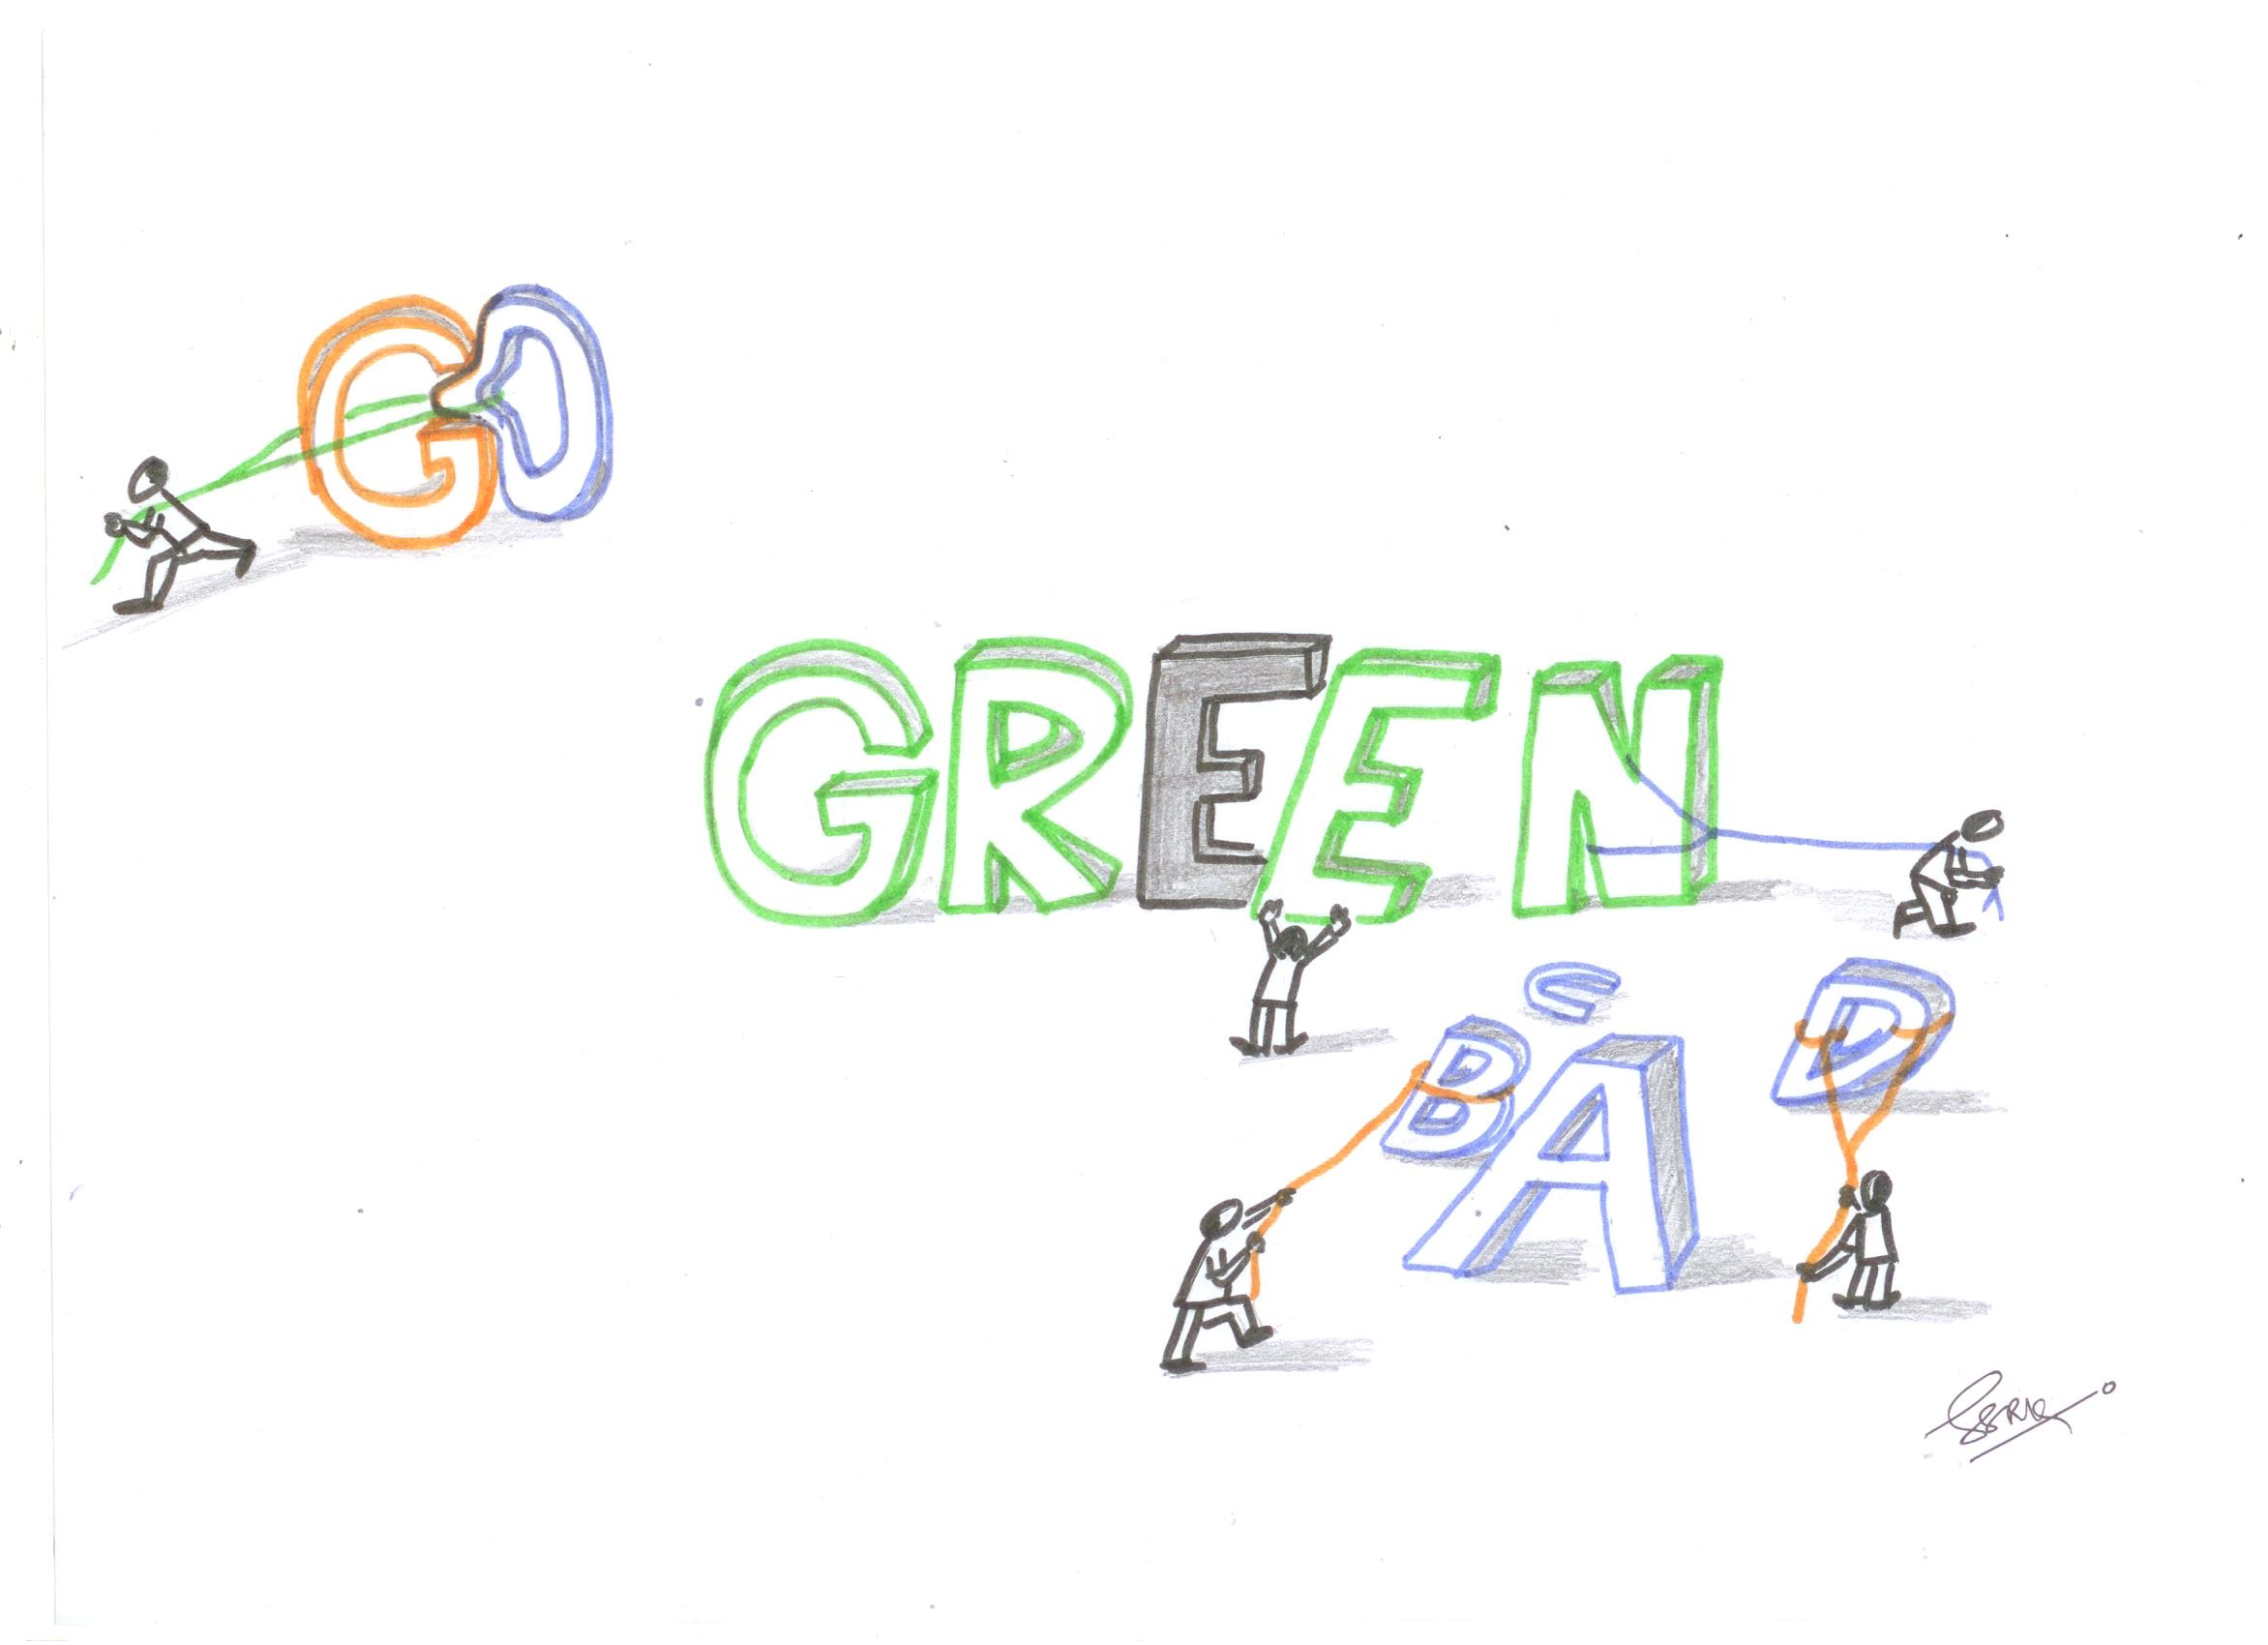 GO
GREEN
C
BAD